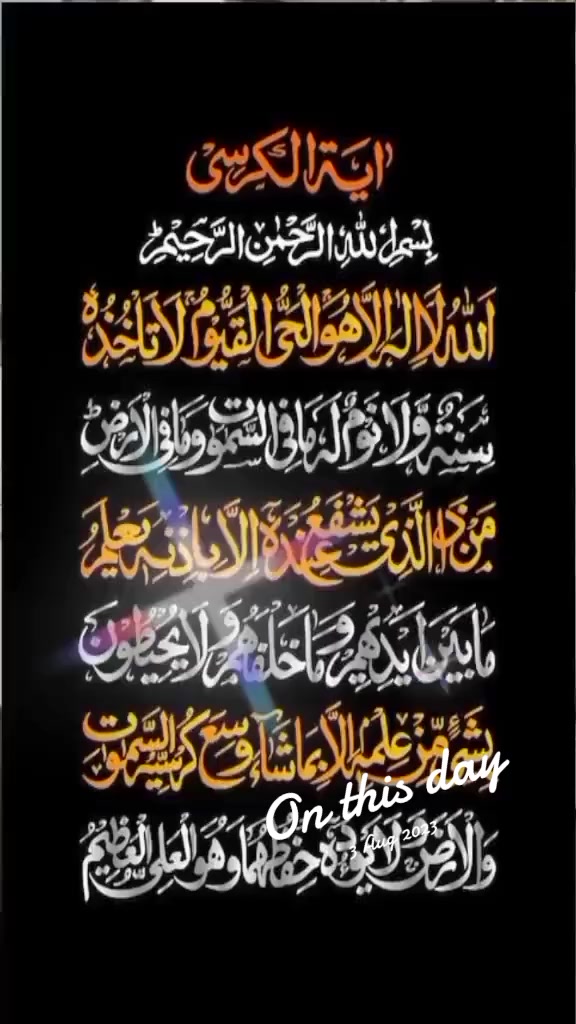 اٰیَةُ الْکُرْسِیْ
بِسْمِ اللهِ الرَّحْمٰنِ الرَّحِیْمِ
اَللهُ لَاۤ اِلٰهَ اِلَّا هُوَ الْحَیُّ الْقَیُّوْمُ لَا تَاْخُذُهٗ
سِنَةٌ وَّلَا نَوْمٌ لَهٗ مَا فِی السَّمٰوٰتِ وَمَا فِی الْاَرْضِ
مَنْ ذَا الَّذِیْ یَشْفَعُ عِنْدَهٗۤ اِلَّا بِاِذْنِهٖ یَعْلَمُ
مَا بَیْنَ اَیْدِیْهِمْ وَمَا خَلْفَهُمْ وَلَا یُحِیْطُوْنَ
بِشَیْءٍ مِّنْ عِلْمِهٖۤ اِلَّا بِمَا شَآءَ وَسِعَ کُرْسِیُّهُ السَّمٰوٰتِ
On this day
وَالْاَرْضَ وَلَا یَئُوْدُهٗ حِفْظُهُمَا وَهُوَ الْعَلِیُّ الْعَظِیْمُ
3 Aug 2023